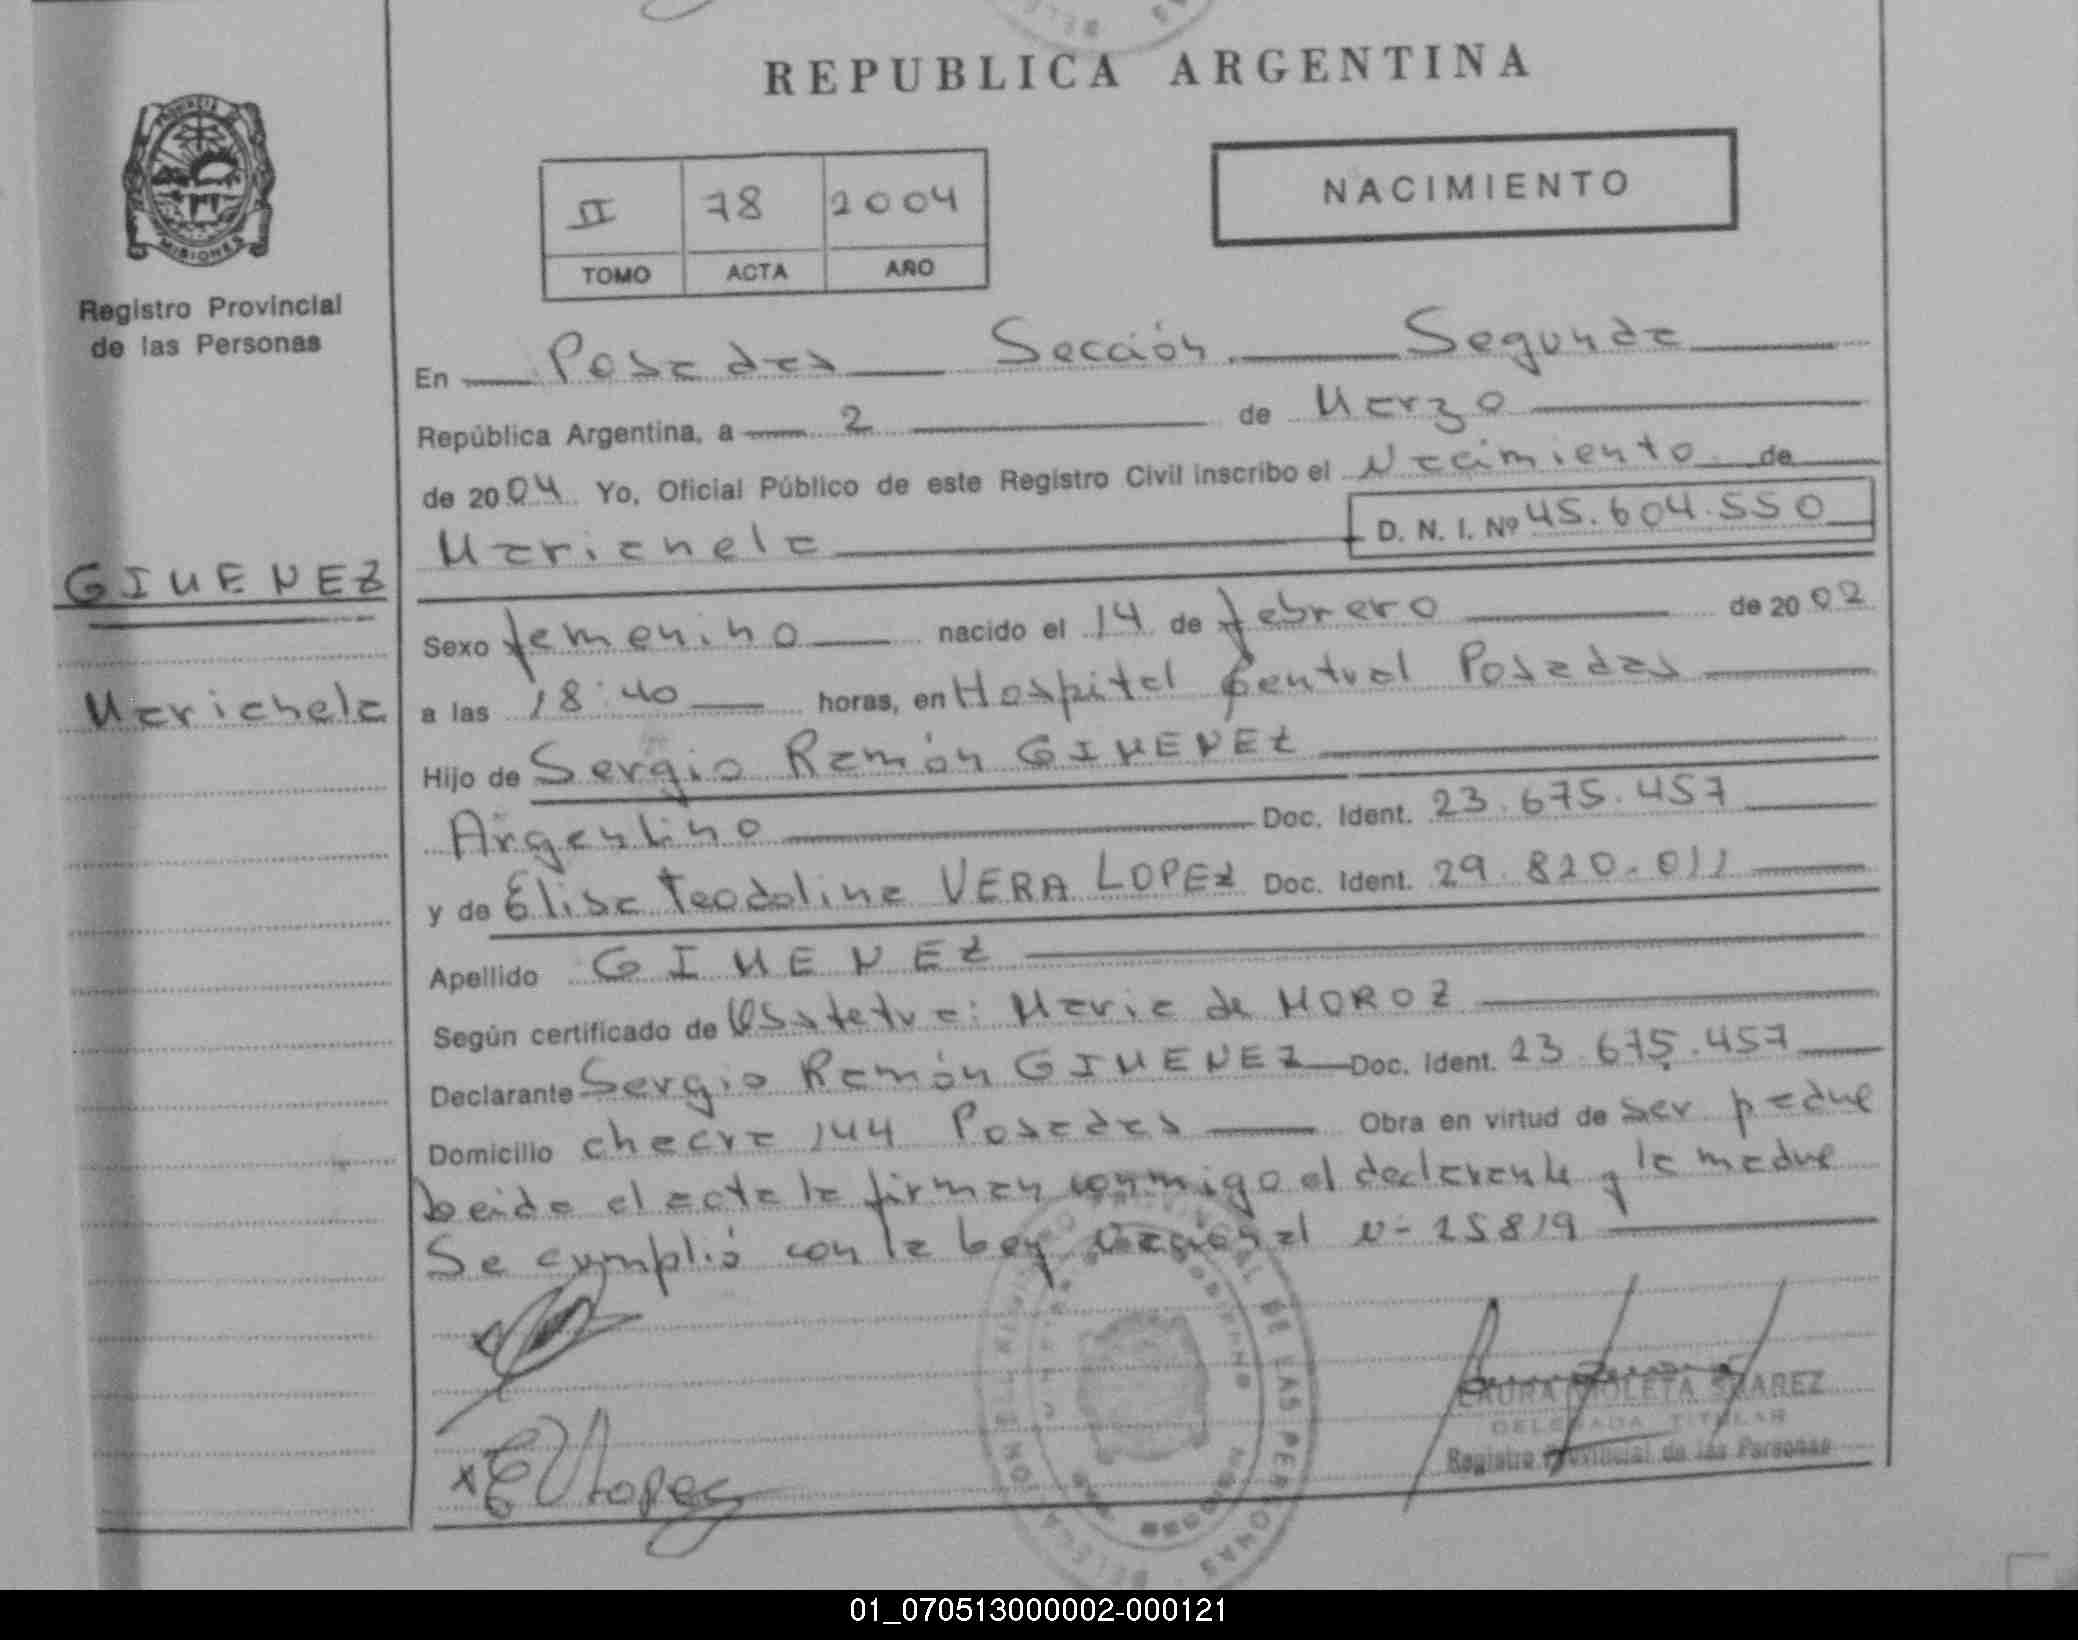 REPUBLICA ARGENTINA
PROVINCIA DE
MISIONES
Registro Provincial
de las Personas
NACIMIENTO
II 78 2004
TOMO ACTA AÑO
En Posadas Sección Segunda
República Argentina, a 2 de Marzo
de 2004 Yo, Oficial Público de este Registro Civil inscribo el Nacimiento de
D. N. I. Nº 45.604.550
Marianela
GIMENEZ
Marianela
Sexo femenino nacido el 14 de febrero de 2002
a las 18:40 horas, en Hospital Central Posadas
Hijo de Sergio Ramón GIMENEZ
Argentino Doc. Ident. 23.675.457
y de Elisa Teodolina VERA LOPEZ Doc. Ident. 29.820.011
Apellido GIMENEZ
Según certificado de Obstetra: Maria de MOROZ
Declarante Sergio Ramón GIMENEZ Doc. Ident. 23.675.457
Domicilio chacra 144 Posadas Obra en virtud de ser padre
Leida el acta la firman conmigo el declarante y la madre
Se cumplió con la Ley Nacional N- 25819
E V Lopez
LAURA VIOLETA SUAREZ
DELEGADA TITULAR
Registro Provincial de las Personas
01_070513000002-000121